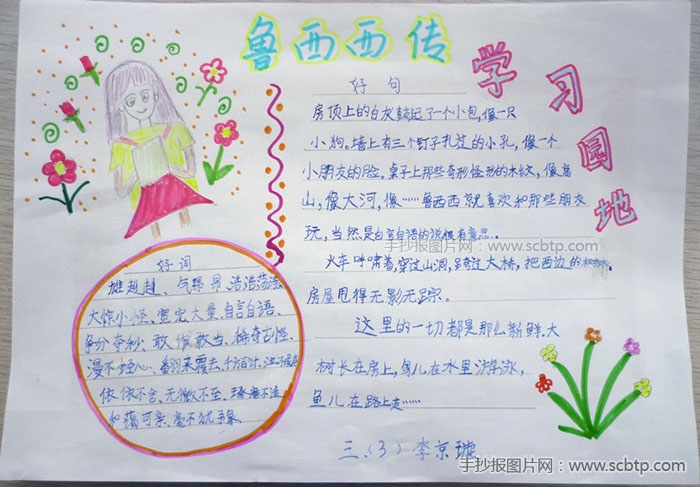 鲁西西传
学习园地
好句
房顶上的白灰鼓起了一个小包,像一只
小狗。墙上有三个钉子扎过的小孔,像一个
小朋友的脸。桌子上那些奇形怪形的木纹,像高
山,像大河,像……鲁西西就喜欢和那些朋友
玩,当然是自言自语的说很有意思。
火车呼啸着,穿过山洞,跨过大桥,把西边的
房屋甩得无影无踪。
这里的一切都是那么新鲜。大
树长在房上,鸟儿在水里游泳,
鱼儿在路上走……
三、(3) 李京璇
好词
雄赳赳、气昂昂、浩浩荡荡、
大惊小怪、宽宏大量、自言自语、
争分夺秒、敢作敢当、稀奇古怪、
漫不经心、翻来覆去、千方百计、
依依不舍、无微不至、琢磨不透、
和蔼可亲、毫不犹豫
手抄报图片网:www.scbtp.com
手抄报图片网:www.scbtp.com